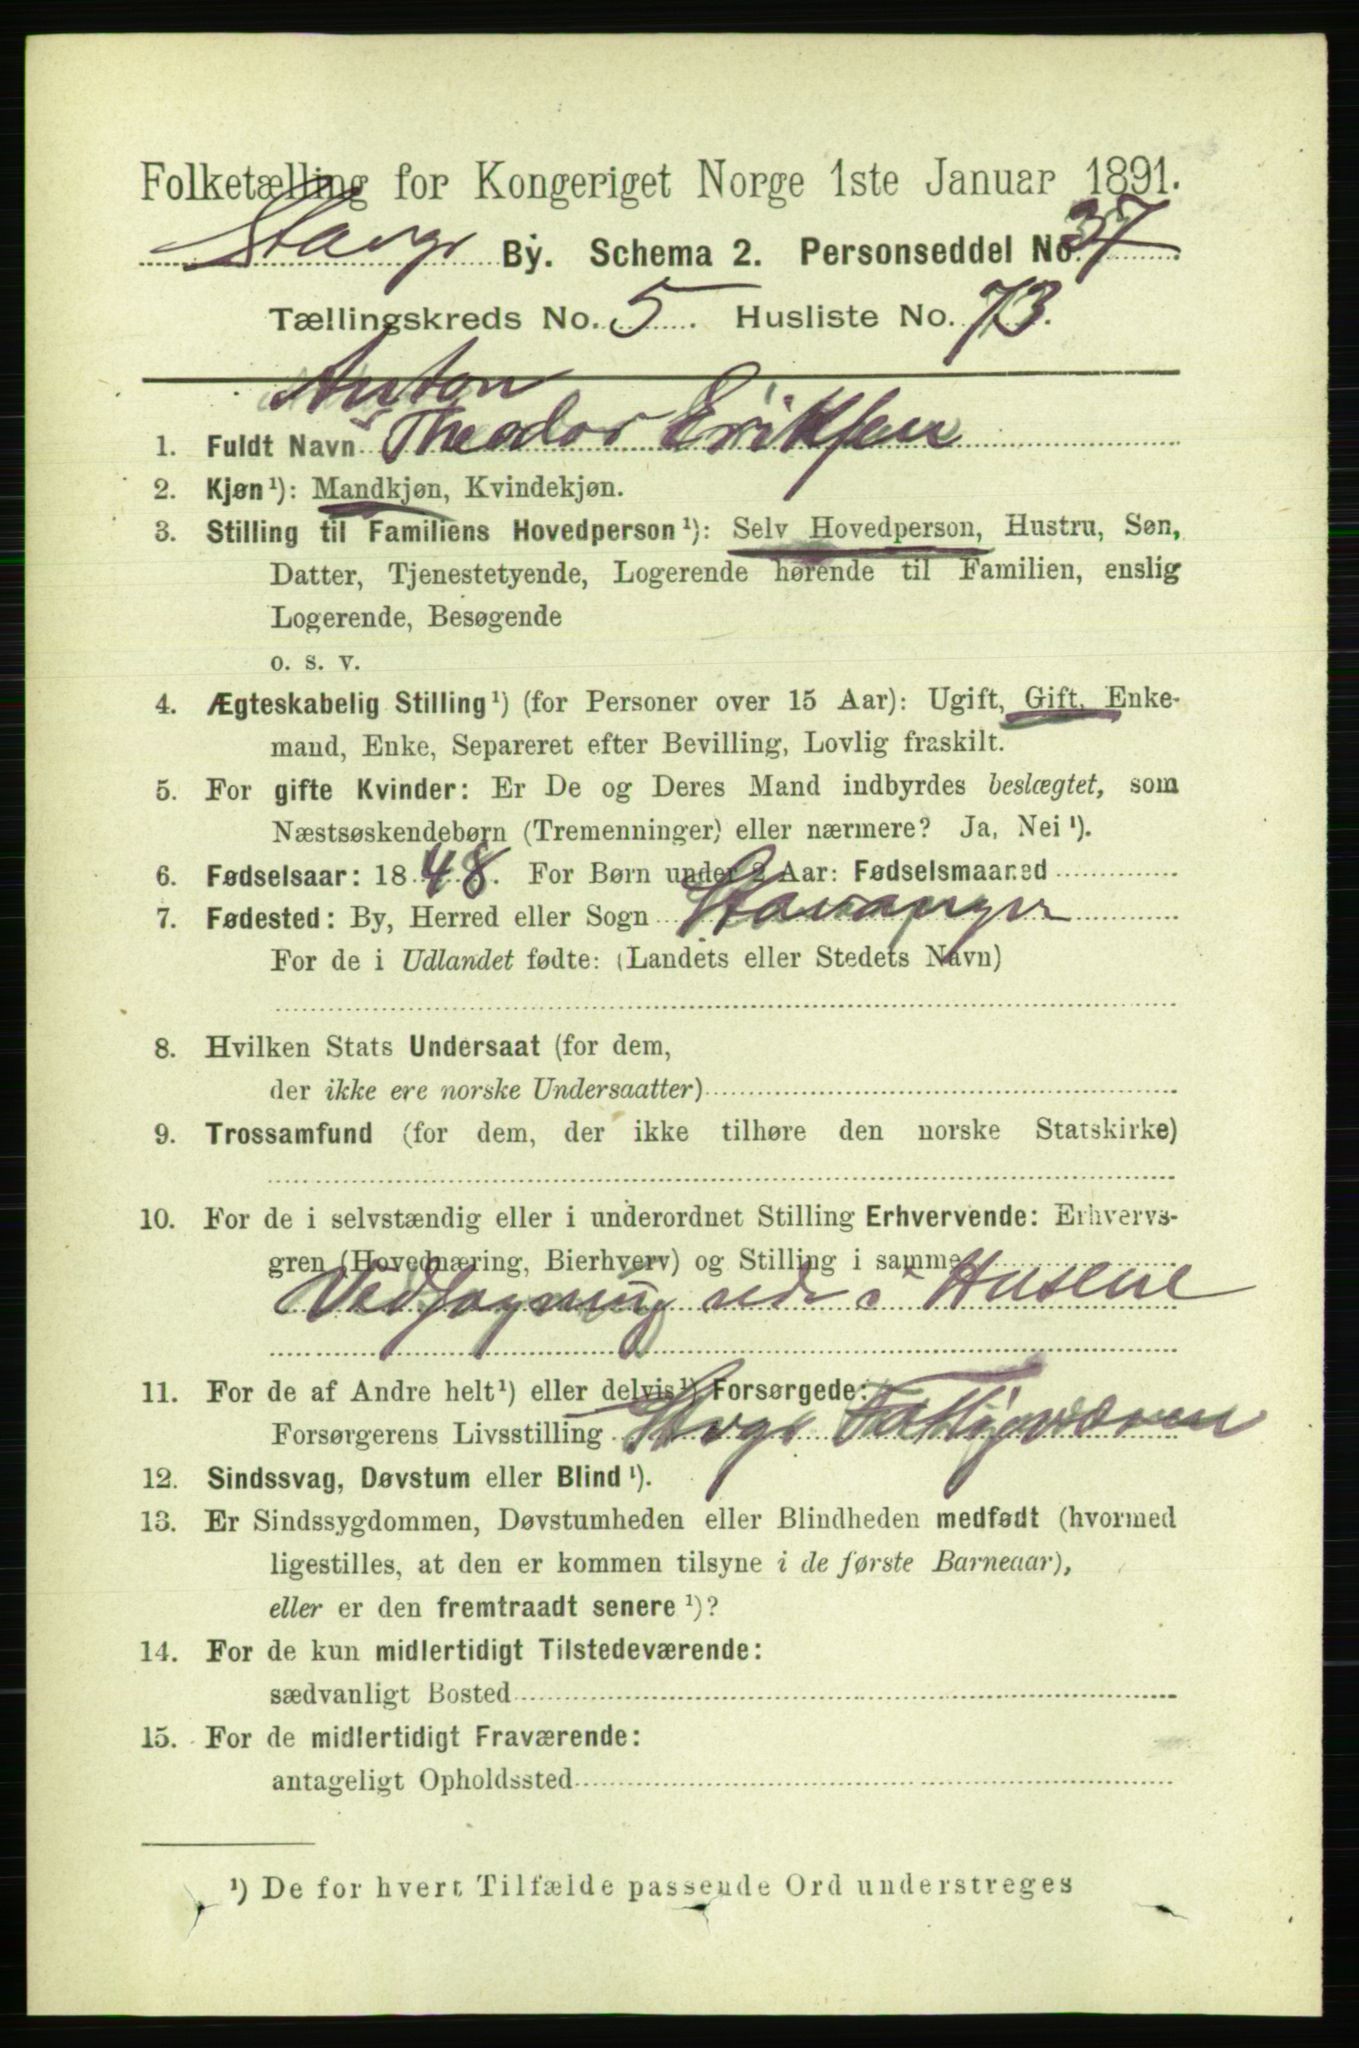 Folketælling for Kongeriget Norge 1ste Januar 1891.
Stavgr By. Schema 2. Personseddel No. 37
Tællingskreds No. 5. Husliste No. 73.
Anton
1. Fuldt Navn Theodor Eriksen
2. Kjøn ¹): Mandkjøn, Kvindekjøn.
3. Stilling til Familiens Hovedperson ¹): Selv Hovedperson, Hustru, Søn,
Datter, Tjenestetyende, Logerende hørende til Familien, enslig
Logerende, Besøgende
o. s. v.
4. Ægteskabelig Stilling ¹) (for Personer over 15 Aar): Ugift, Gift, Enke-
mand, Enke, Separeret efter Bevilling, Lovlig fraskilt.
5. For gifte Kvinder: Er De og Deres Mand indbyrdes beslægtet, som
Næstsøskendebørn (Tremenninger) eller nærmere? Ja, Nei ¹).
6. Fødselsaar: 1848. For Børn under 2 Aar: Fødselsmaaned
7. Fødested: By, Herred eller Sogn Stavanger
For de i Udlandet fødte: (Landets eller Stedets Navn)
8. Hvilken Stats Undersaat (for dem,
der ikke ere norske Undersaatter)
9. Trossamfund (for dem, der ikke tilhøre den norske Statskirke)
10. For de i selvstændig eller i underordnet Stilling Erhvervende: Erhvervs-
gren (Hovednæring, Bierhverv) og Stilling i samme
Vedsagning ude i Husene
11. For de af Andre helt ¹) eller delvis ¹) Forsørgede:
Forsørgerens Livsstilling Stvgr Fattigvæsen
12. Sindssvag, Døvstum eller Blind ¹).
13. Er Sindssygdommen, Døvstumheden eller Blindheden medfødt (hvormed
ligestilles, at den er kommen tilsyne i de første Barneaar),
eller er den fremtraadt senere ¹)?
14. For de kun midlertidigt Tilstedeværende:
sædvanligt Bosted
15. For de midlertidigt Fraværende:
antageligt Opholdssted
¹) De for hvert Tilfælde passende Ord understreges